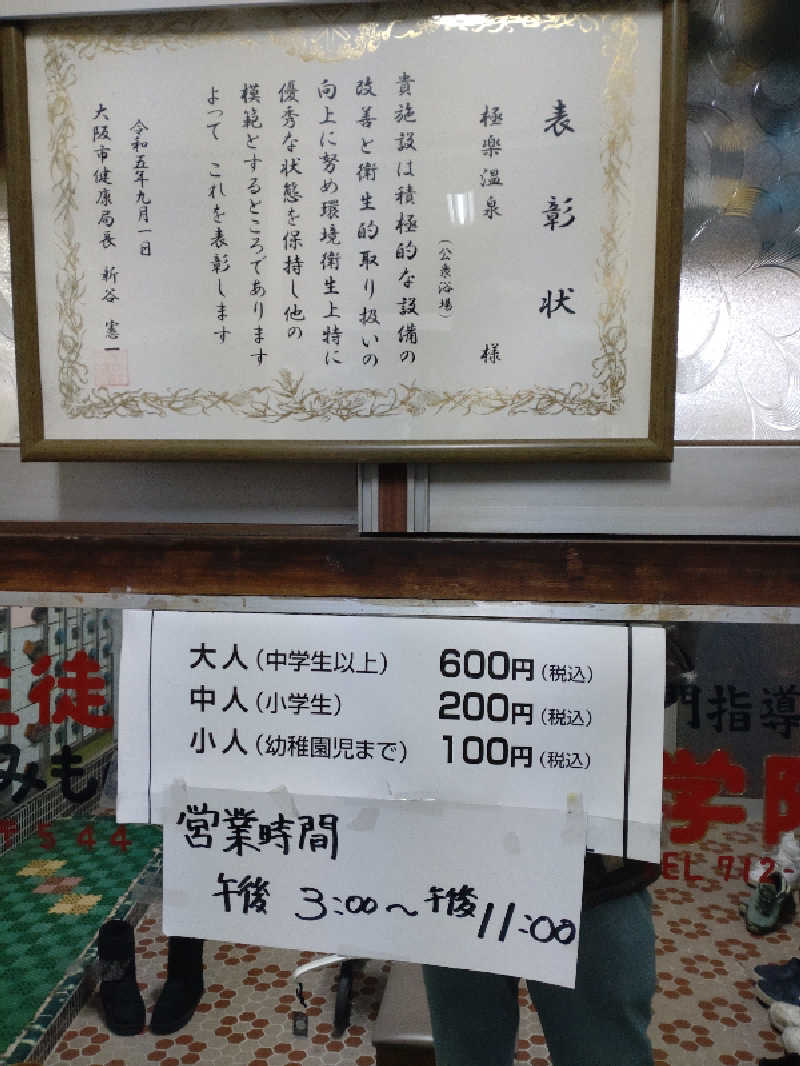 表彰状
極楽温泉 様
(公衆浴場)
貴施設は積極的な設備の
改善と衛生的取り扱いの
向上に努め環境衛生上特に
優秀な状態を保持し他の
模範とするところであります
よつて これを表彰します
令和五年九月一日
大阪市健康局長 新谷 憲一
大人(中学生以上) 600円(税込)
中人(小学生) 200円(税込)
小人(幼稚園児まで) 100円(税込)
営業時間
午後 3:00～午後11:00
生徒
みも
544
門指導
学院
TEL 712-